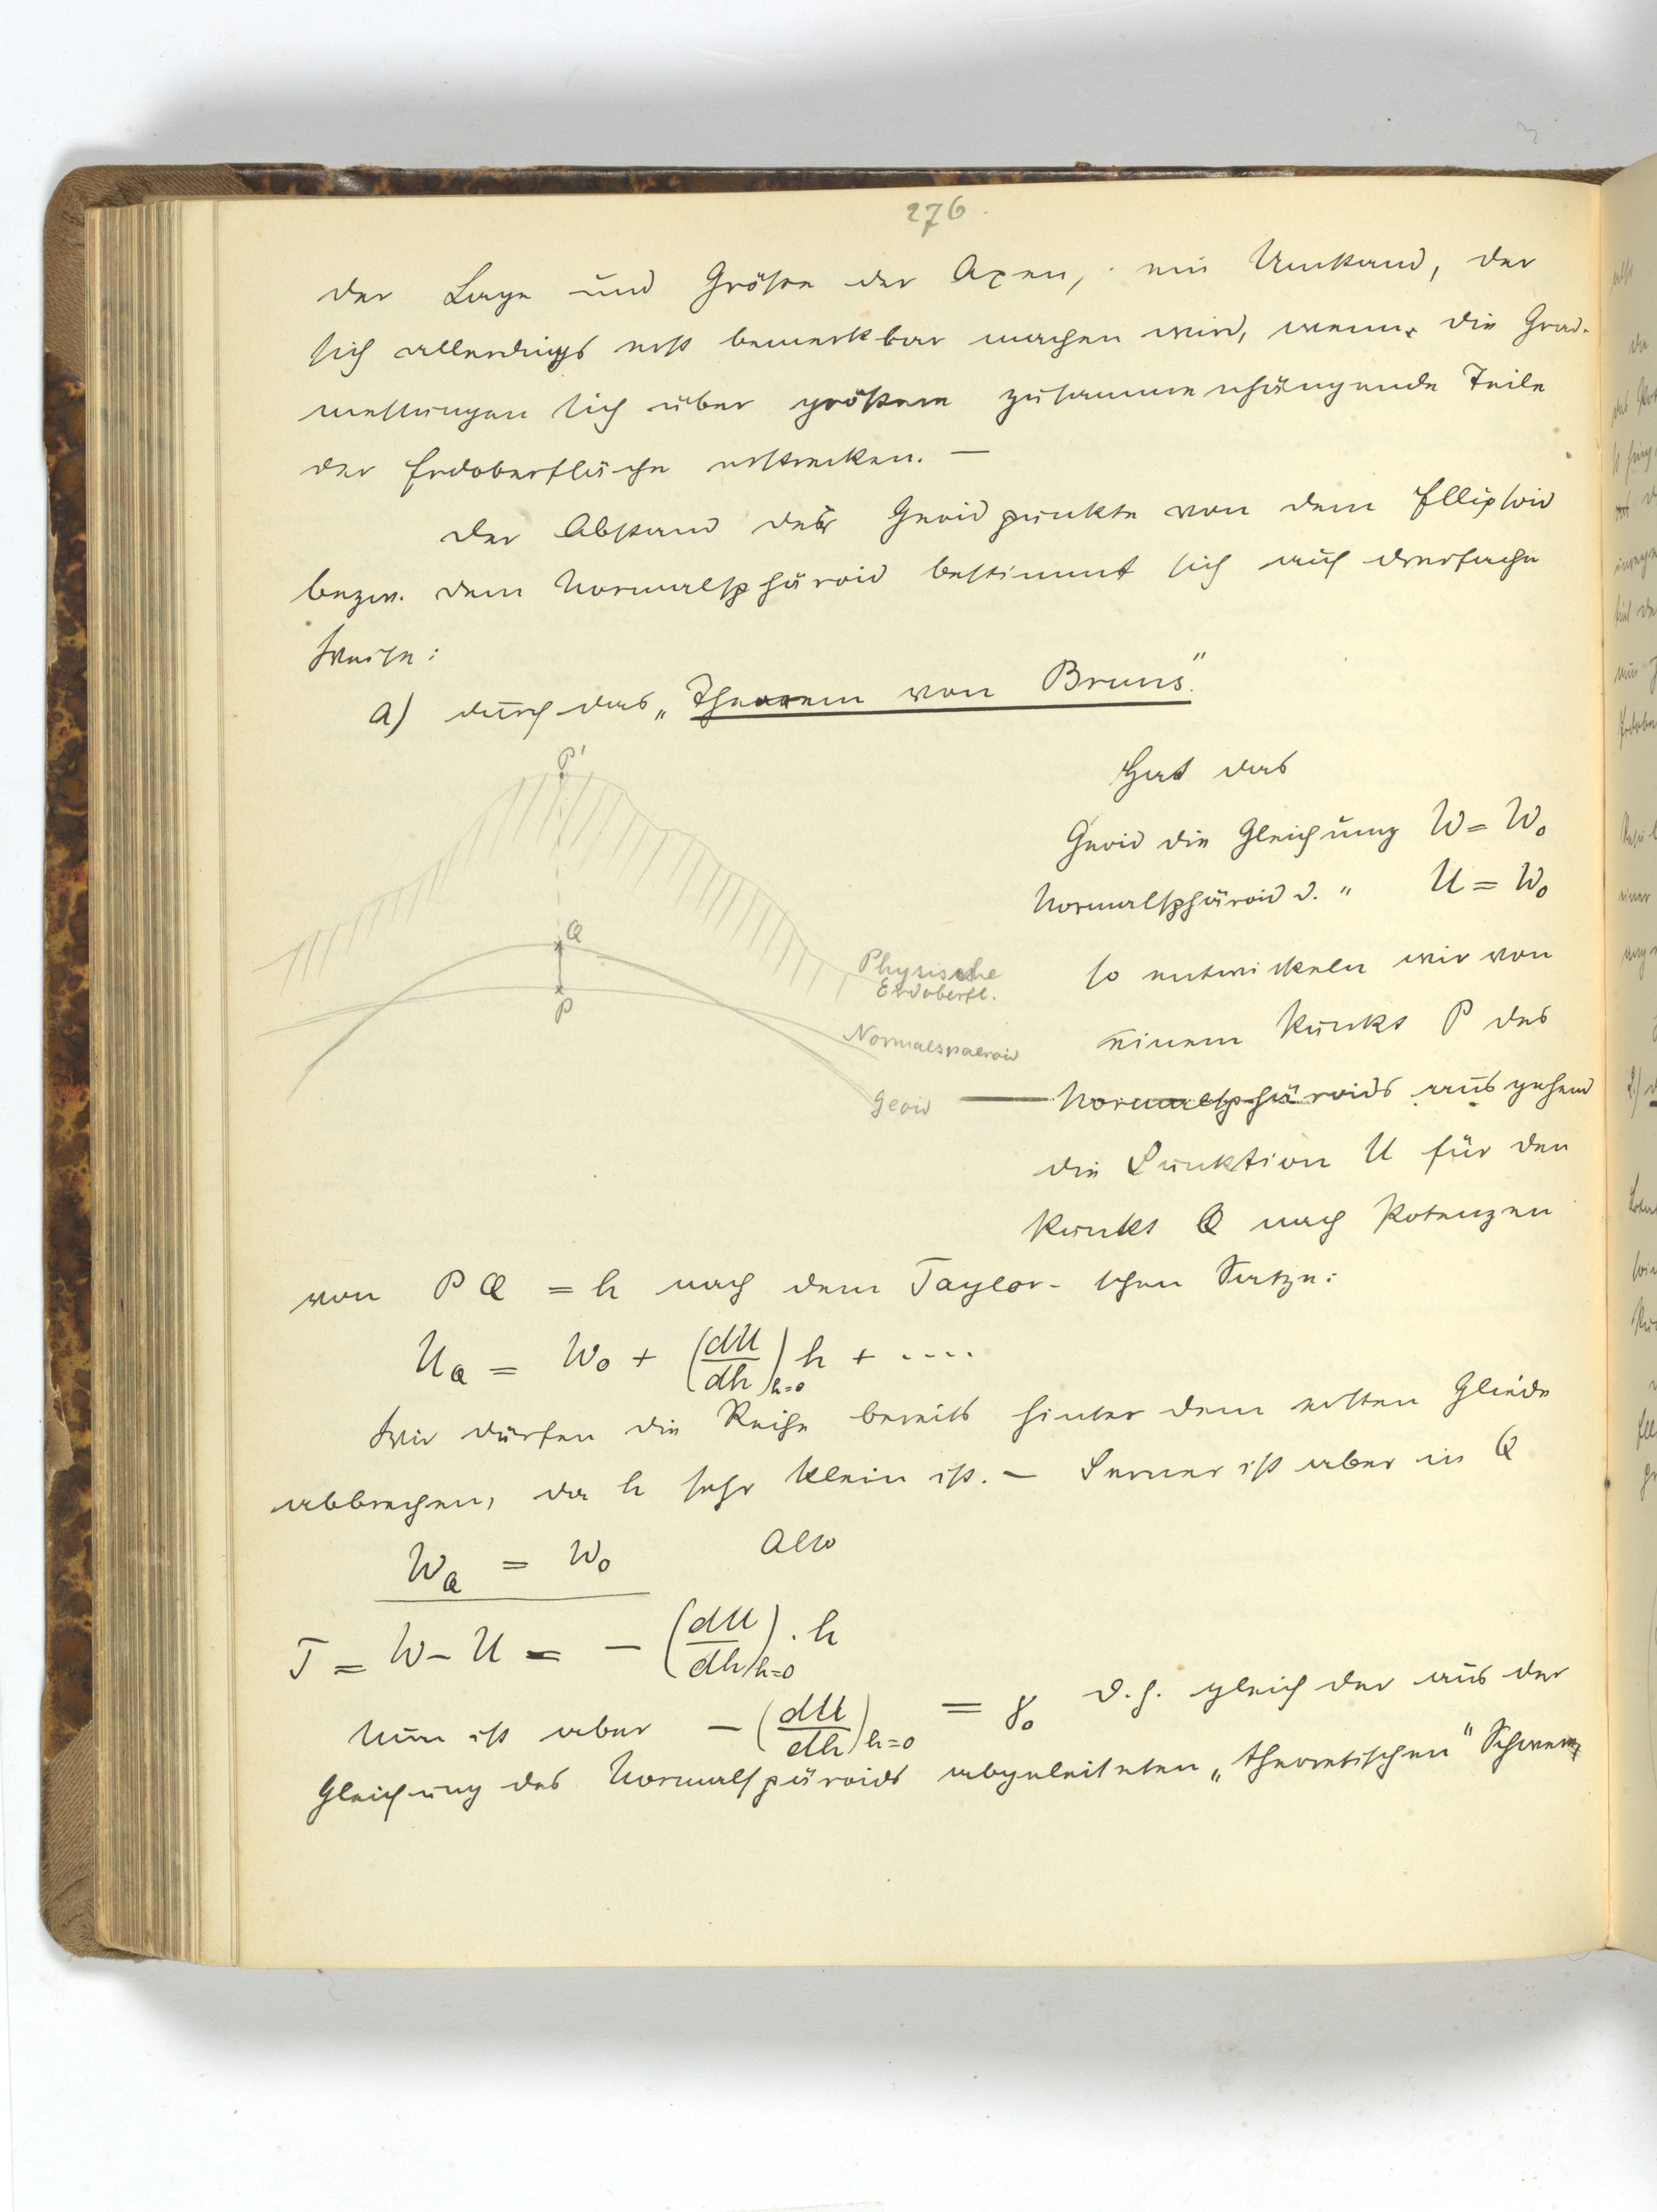 276.
der Lage und Größe der Axen, ein Umstand, der
sich allerdings erst bemerkbar machen wird, wenn die Grad-
messungen sich über größere zusammenhängende Teile
der Erdoberfläche erstrecken. —
Der Abstand der Geoidpunkte von dem Ellipsoid
bezw. dem Normalsphäroid bestimmt sich auf dreifache
Weise:
a) durch das „Theorem von Bruns."
Hat das
Geoid die Gleichung W = W₀
Normalsphäroid d. " U = W₀
so entwickeln wir von
einem Punkt P des
Normalsphäroids ausgehend
die Funktion U für den
Punkt Q nach Potenzen
P'
Q
P
Physische
Erdoberfl.
Normalspaeroid
Geoid
von PQ = h nach dem Taylor-schen Satze:
U_Q = W₀ + (dU/dh)_{h=0} h + ....
Wir dürfen die Reihe bereits hinter dem ersten Gliede
abbrechen, da h sehr klein ist. — Ferner ist aber in Q
W_Q = W₀ Also
T = W – U = – (dU/dh)_{h=0} . h
Nun ist aber – (dU/dh)_{h=0} = γ₀ d.h. gleich der aus der
Gleichung des Normalspäroids abgeleiteten „theoretischen" Schwere,